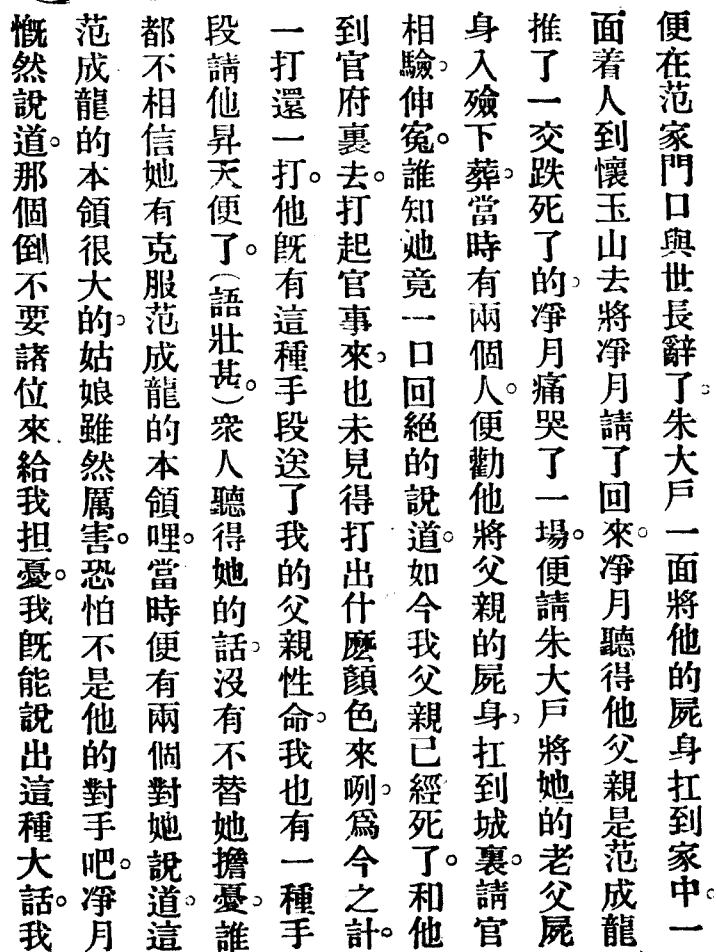 便在范家門口與世長辭了。朱大戶一面將他的屍身扛到家中。一
面着人到懷玉山去將凈月請了回來。凈月聽得他父親是范成龍
推了一交跌死了的。凈月痛哭了一場。便請朱大戶將她的老父屍
身入殮下葬。當時有兩個人。便勸他將父親的屍身。扛到城裏。請官
相驗。伸冤。誰知她竟一口回絕的說道。如今我父親已經死了。和他
到官府裏去。打起官事來。也未見得打出什麽顏色來咧。爲今之計。
一打還一打。他既有這種手段送了我的父親性命。我也有一種手
段請他昇天便了。(語壯甚。)衆人聽得她的話。沒有不替她擔憂。誰
都不相信她有克服范成龍的本領哩。當時便有兩個對她說道。這
范成龍的本領很大的。姑娘雖然厲害。恐怕不是他的對手吧。凈月
慨然說道。那個倒不要諸位來給我担憂。我既能說出這種大話。我